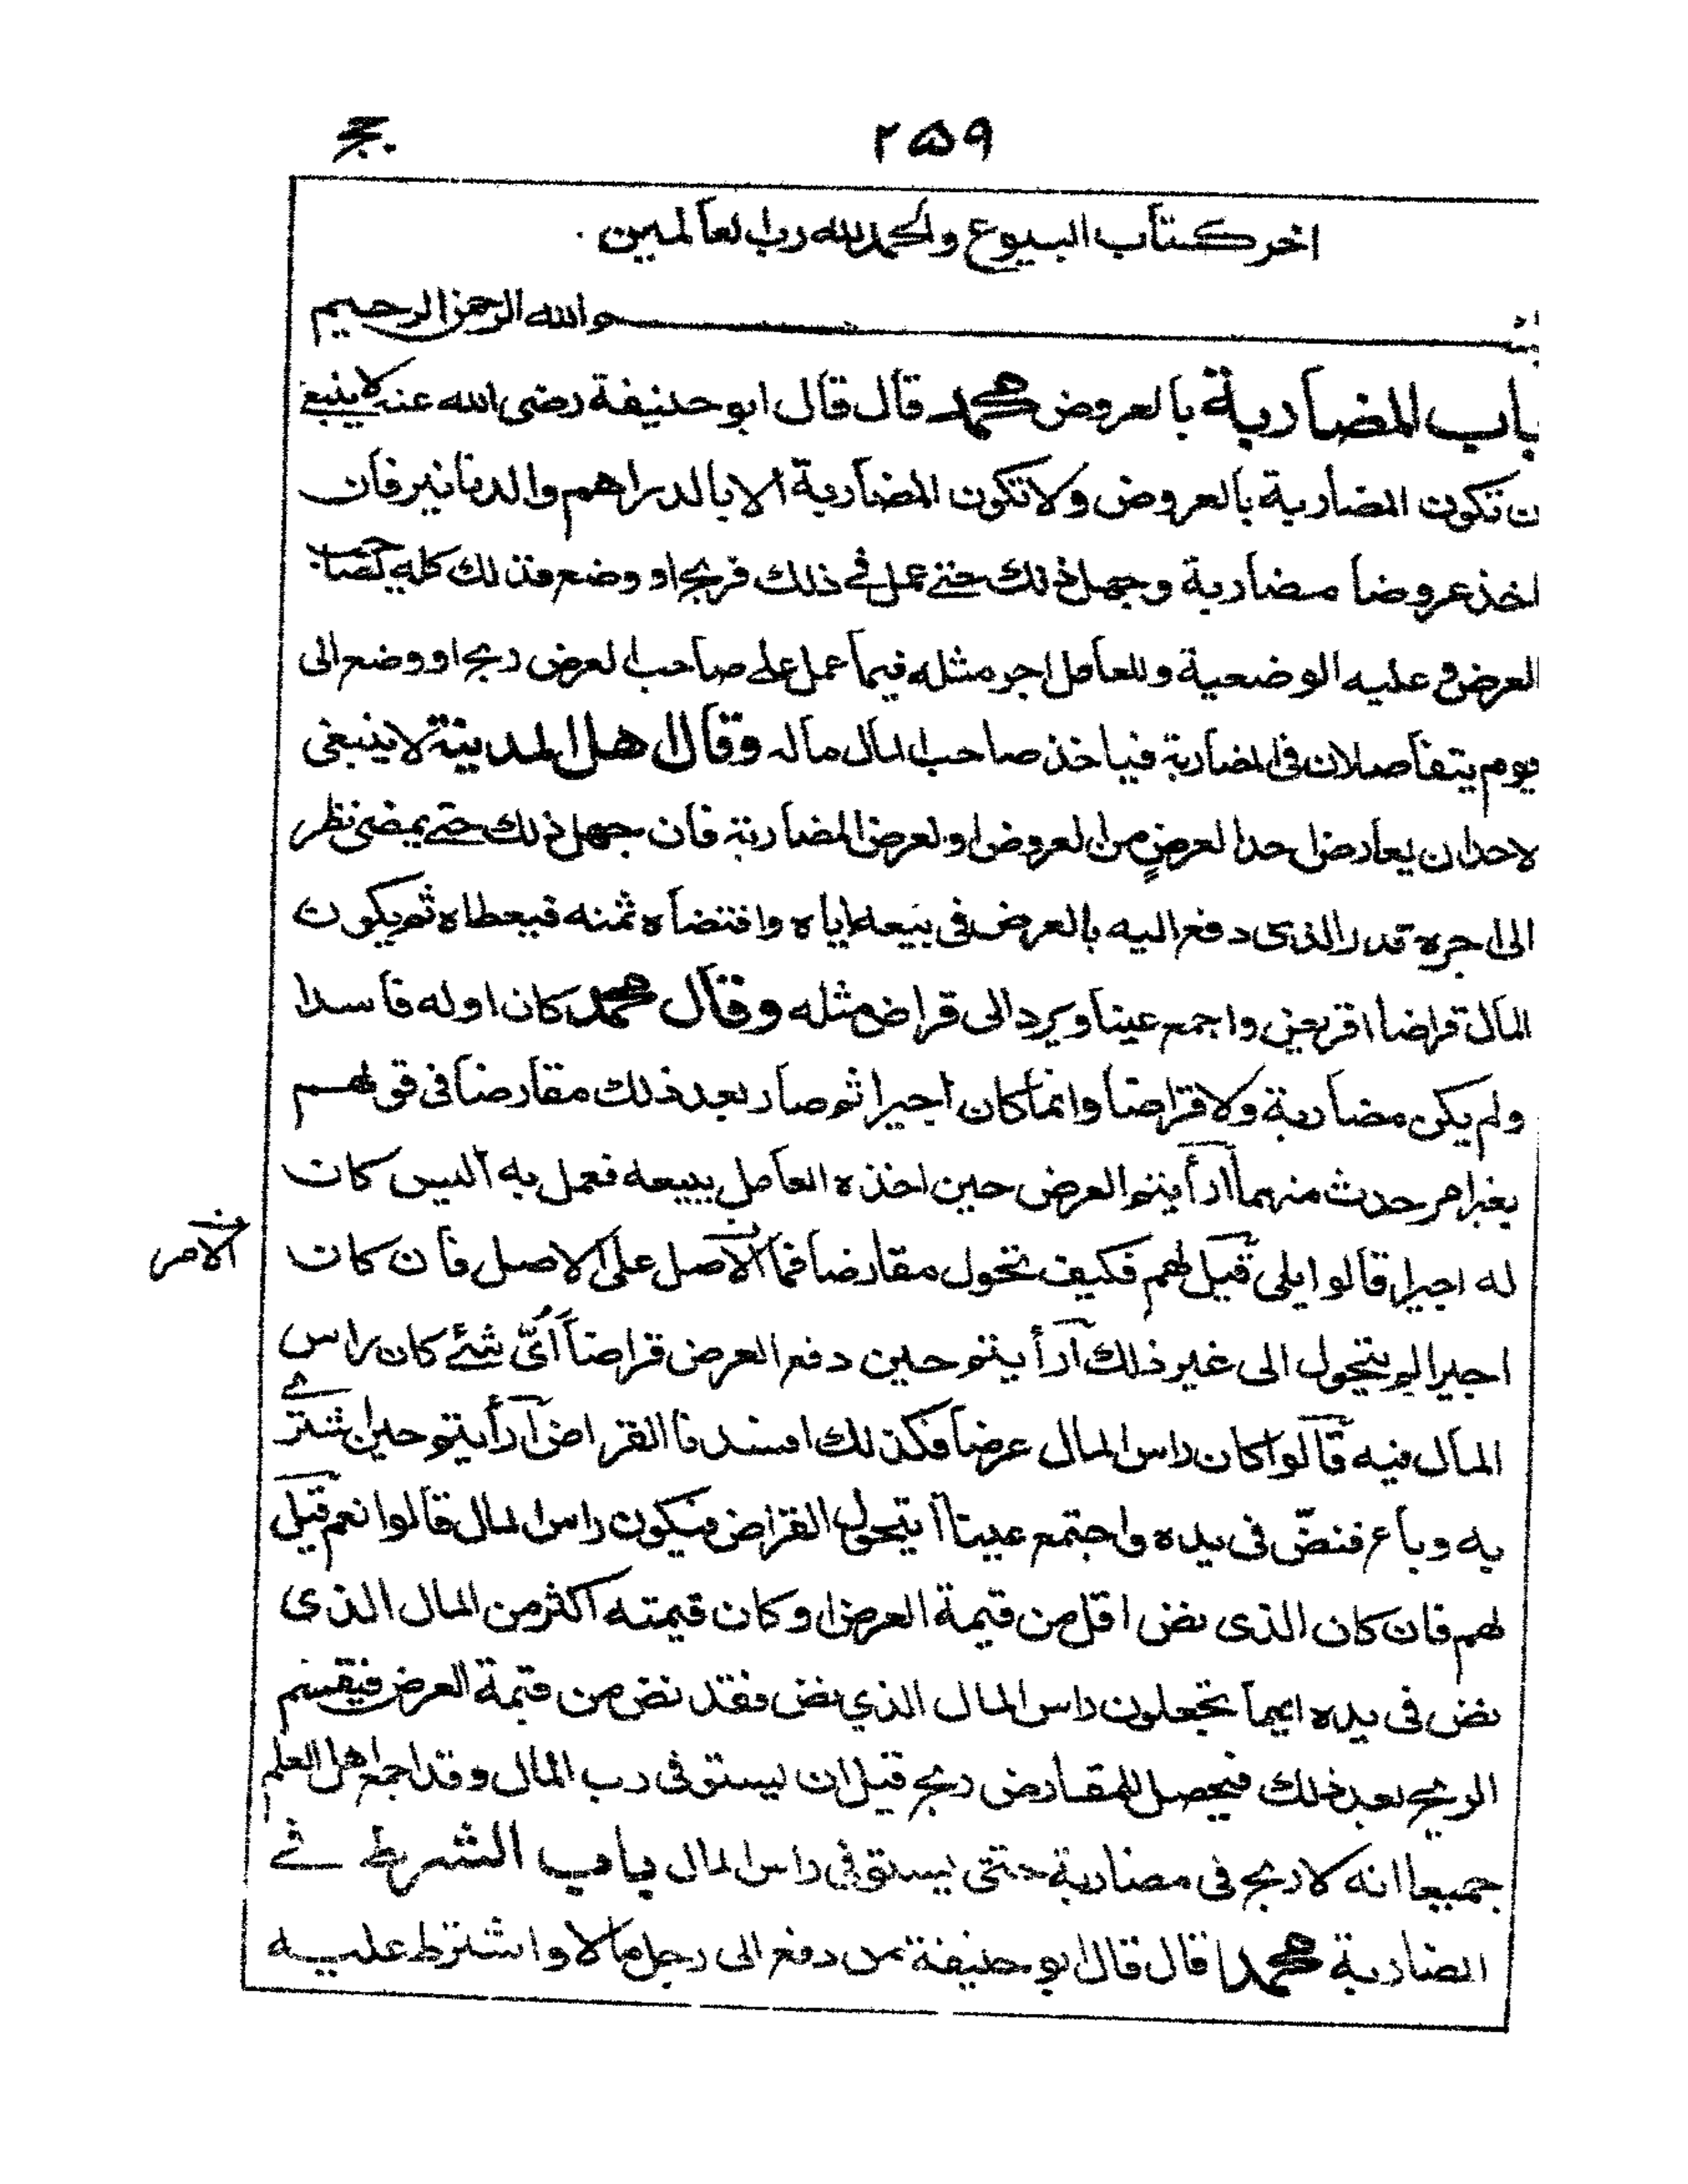 ۲۵۹
اخر كتاب البيوع والحمد لله رب العالمين .
بسم الله الرحمن الرحيم
باب المضاربة بالعروض محمد قال قال ابو حنيفة رضى الله عنه لا ينبغى
ن تكون المضاربة بالعروض ولا تكون المضاربة الا بالدراهم والدنانير فان
اخذ عروضا مضاربة وجهل ذلك حتى عمل فى ذلك فربح او وضع فذلك كله لصاحب
العرض و عليه الوضعية وللعامل اجر مثله فيما عمل على صاحب العرض ربح او وضع الى
يوم يتفاصلان فى المضاربة فياخذ صاحب المال ماله وقال اهل المدينة لا ينبغى
لاحد ان يعارض احدا لعرض من العروض او لعرض المضاربة فان جهل ذلك حتى يمضى نظر
الى اجره قدر الذى دفع اليه بالعرض فى بيعه اياه واقتضاه ثمنه فيعطاه ثم يكون
المال قراضا اقر بعين واجمع عينا ويرد الى قراض مثله وقال محمد كان اوله فاسدا
ولم يكن مضاربة ولا قراضا وانما كان اجيرا ثم صار بعد ذلك مقارضا فى قولهم
بغير امر حدث منهما أرأيتم العرض حين اخذه العامل يبيعه فعمل به أليس كان
له اجيرا قالوا بلى قيل لهم فكيف تحول مقارضا فما الاصل على الاصل فان كان
الامر
اجيرا لم يتحول الى غير ذلك أرأيتم حين دفع العرض قراضا أىّ شئ كان راس
المال فيه قالوا كان راس المال عرضا فكذلك افسدنا القراض أرأيتم حين اشترى
به وباع فنضّ فى يده واجتمع عينا أيتحول القراض فيكون راس المال قالوا نعم قيل
لهم فان كان الذى نض اقل من قيمة العرض او كان قيمته اكثر من المال الذى
نض فى يده ايهما تجعلون راس المال الذي نض فقد نض من قيمة العرض فيقسم
الربح بعد ذلك فيحصل للمقارض ربح قبل ان يستوفى رب المال وقد اجمع اهل العلم
جميعا انه لا ربح فى مضاربة حتى يستوفي راس المال باب الشرط فى
المضاربة محمد قال قال ابو حنيفة من دفع الى رجل مالا واشترط عليه